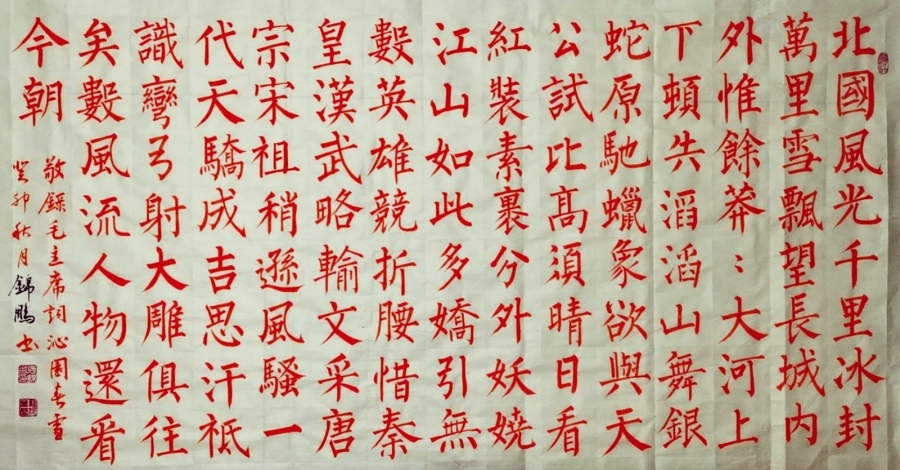 北國風光千里冰封
萬里雪飄望長城内
外惟餘莽〻大河上
下頓失滔滔山舞銀
蛇原馳蠟象欲與天
公試比髙須晴日看
紅裝素裹分外妖嬈
江山如此多嬌引無
數英雄競折腰惜秦
皇漢武略輸文采唐
宗宋祖稍遜風騷一
代天驕成吉思汗祗
識彎弓射大雕俱往
矣數風流人物還看
今朝
敬錄毛主席詞沁園春雪
癸卯秋月錦鵬书